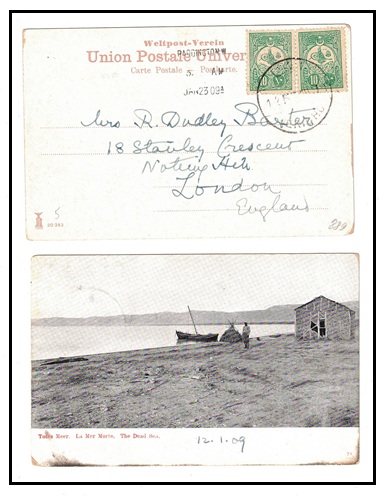 Weltpost-Verein
Union Postale Univer
Carte Postale Postcarte.
PADDINGTON W
5. AM
JAN 23 09
10 10
Mrs R. Dudley Baxter
18 Stanley Crescent
Notting Hill
London
England
Totes Meer. La Mer Morte, The Dead Sea.
12.1.09